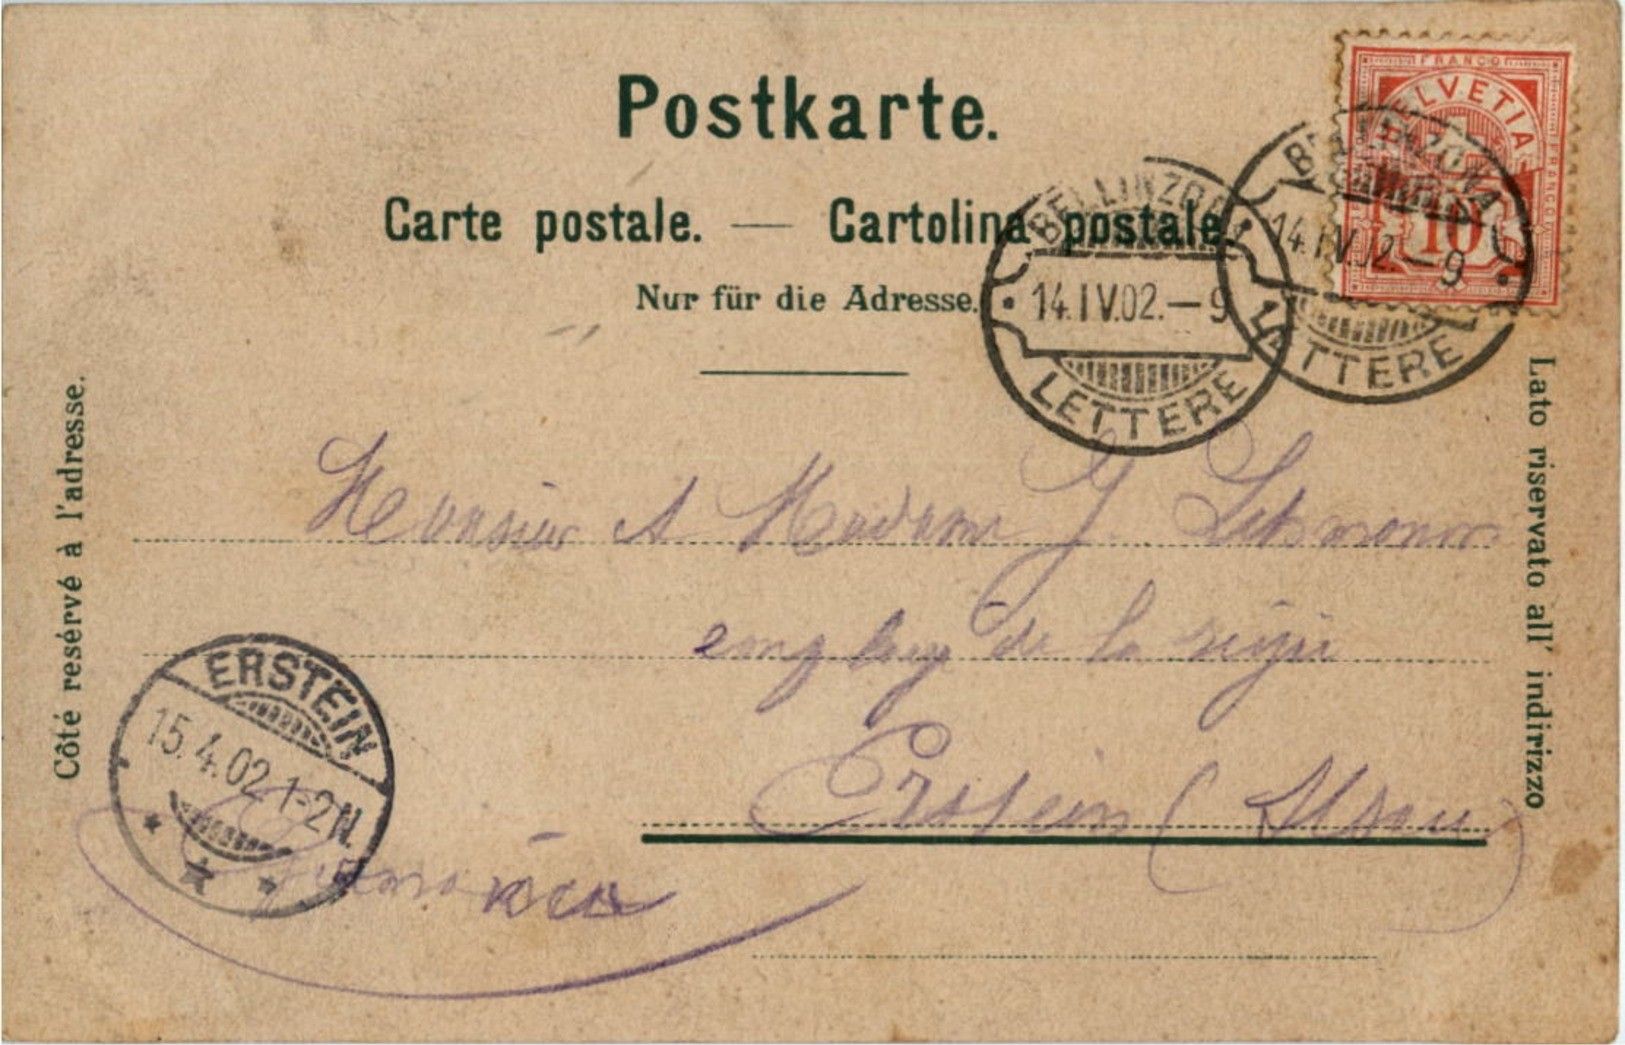 Postkarte.
Carte postale. — Cartolina postale
Nur für die Adresse.
FRANCO
HELVETIA
FRANCO
10
BELLINZONA
14.IV.02.—9
LETTERE
BELLINZONA
14.IV.02.—9
LETTERE
Côté resérvé à l'adresse.
Lato riservato all' indirizzo
Monsieur et Madame J.
de la
Erstein (Alsace)
ERSTEIN
15.4.02.1-2N.